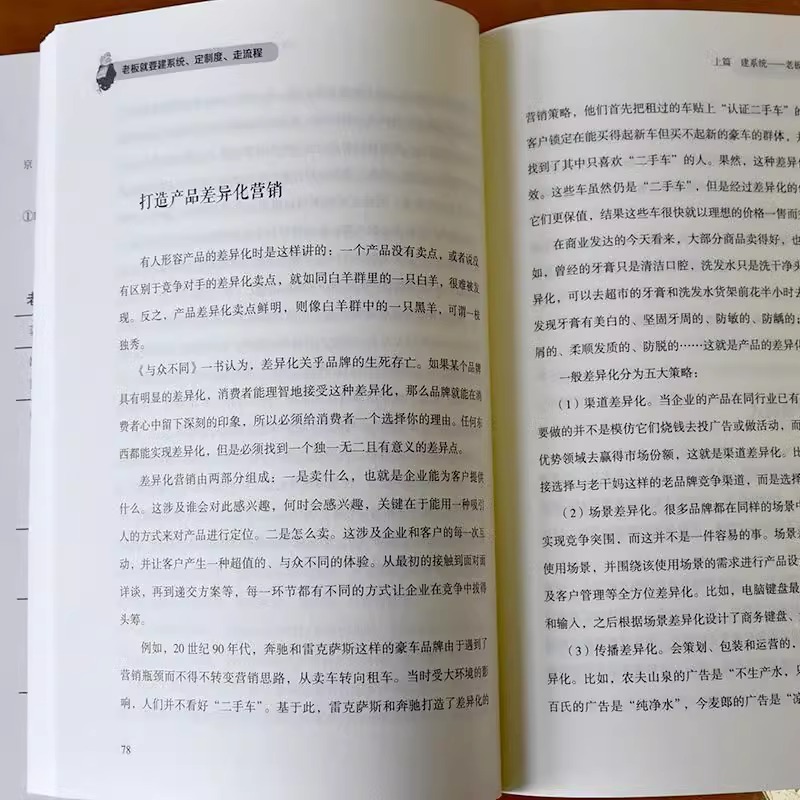 老板就要建系统、定制度、走流程
打造产品差异化营销
有人形容产品的差异化时是这样讲的：一个产品没有卖点，或者说没
有区别于竞争对手的差异化卖点，就如同白羊群里的一只白羊，很难被发
现。反之，产品差异化卖点鲜明，则像白羊群中的一只黑羊，可谓一枝
独秀。
《与众不同》一书认为，差异化关乎品牌的生死存亡。如果某个品牌
具有明显的差异化，消费者能理智地接受这种差异化，那么品牌就能在消
费者心中留下深刻的印象，所以必须给消费者一个选择你的理由。任何东
西都能实现差异化，但是必须找到一个独一无二且有意义的差异点。
差异化营销由两部分组成：一是卖什么，也就是企业能为客户提供
什么。这涉及谁会对此感兴趣，何时会感兴趣，关键在于能用一种吸引
人的方式来对产品进行定位。二是怎么卖。这涉及企业和客户的每一次互
动，并让客户产生一种超值的、与众不同的体验。从最初的接触到面对面
详谈，再到递交方案等，每一环节都有不同的方式让企业在竞争中拔得
头筹。
例如，20世纪90年代，奔驰和雷克萨斯这样的豪车品牌由于遇到了
营销瓶颈而不得不转变营销思路，从卖车转向租车。当时受大环境的影
响，人们并不看好“二手车”。基于此，雷克萨斯和奔驰打造了差异化的
78
上篇 建系统——老板
营销策略，他们首先把租过的车贴上“认证二手车”的
客户锁定在能买得起新车但买不起新的豪车的群体，
找到了其中只喜欢“二手车”的人。果然，这种差异
效。这些车虽然仍是“二手车”，但是经过差异化的
它们更保值，结果这些车很快就以理想的价格一售而
在商业发达的今天看来，大部分商品卖得好，也
如，曾经的牙膏只是清洁口腔，洗发水只是洗干净头
异化，可以去超市的牙膏和洗发水货架前花半小时去
发现牙膏有美白的、坚固牙周的、防敏的、防龋的；
屑的、柔顺发质的、防脱的……这就是产品的差异化
一般差异化分为五大策略：
（1）渠道差异化。当企业的产品在同行业已有
要做的并不是模仿它们烧钱去投广告或做活动，而
优势领域去赢得市场份额，这就是渠道差异化。比
接选择与老干妈这样的老品牌竞争渠道，而是选择
（2）场景差异化。很多品牌都在同样的场景中
实现竞争突围，而这并不是一件容易的事。场景
使用场景，并围绕该使用场景的需求进行产品设
及客户管理等全方位差异化。比如，电脑键盘最
和输入，之后根据场景差异化设计了商务键盘、
（3）传播差异化。会策划、包装和运营的，
异化。比如，农夫山泉的广告是“不生产水，只
百氏的广告是“纯净水”，今麦郎的广告是“凉